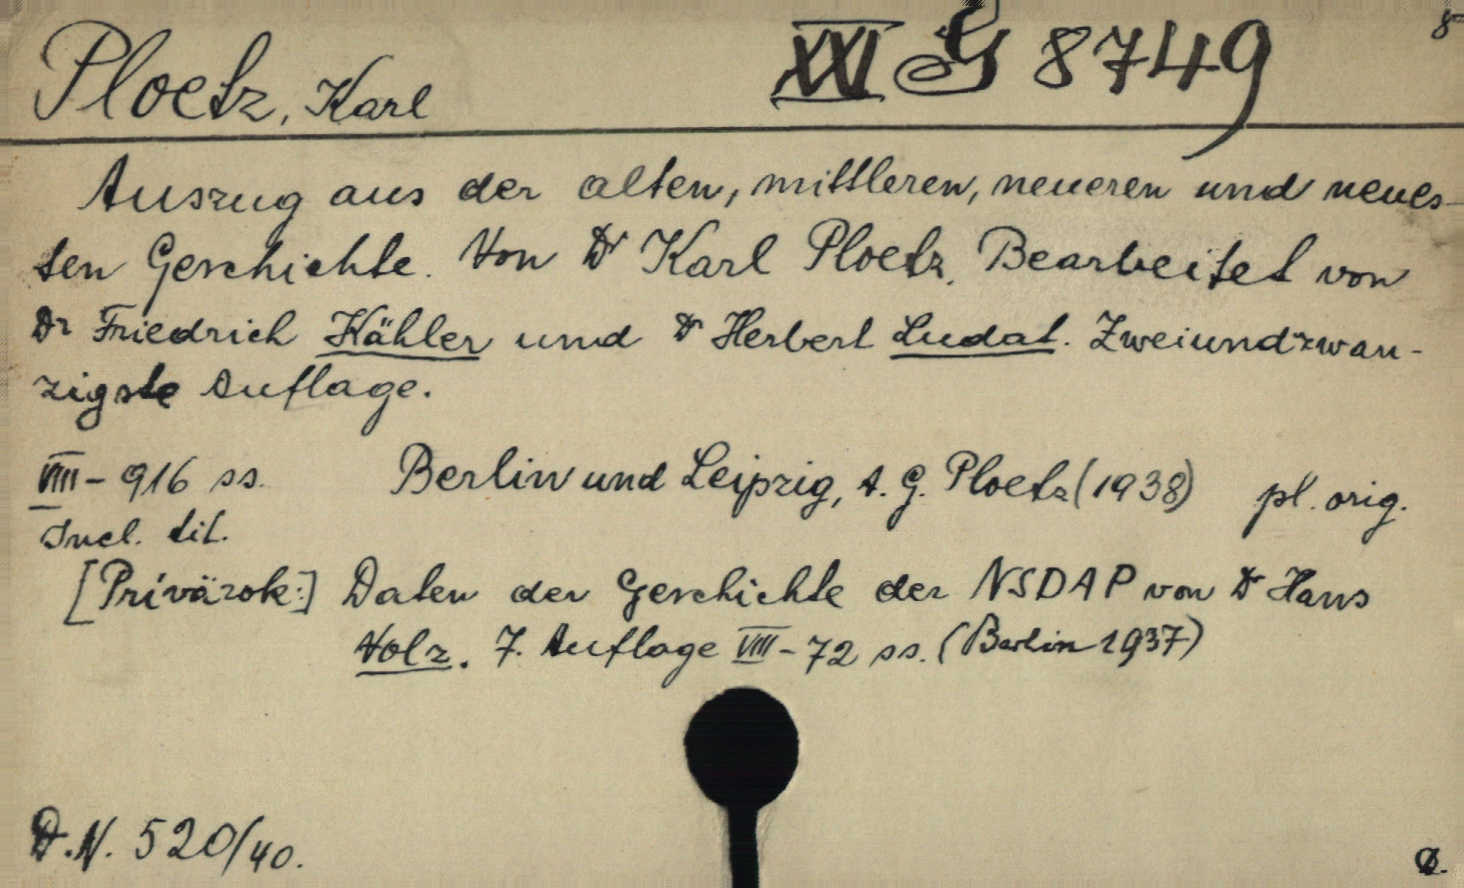 Ploetz, Karl XXI G 8749 8°
Auszug aus der alten, mittleren, neueren und neues-
ten Geschichte. Von Dr Karl Ploetz. Bearbeitet von
Dr Friedrich Kähler und Dr Herbert Ludat. Zweiundzwan-
zigste Auflage.
VIII - 916 ss. Berlin und Leipzig, A. G. Ploetz (1938) pl. orig.
Incl. tit.
[Přívázok:] Daten der Geschichte der NSDAP von Dr Hans
Volz. 7. Auflage VIII - 72 ss. (Berlin 1937)
D.N. 520/40.